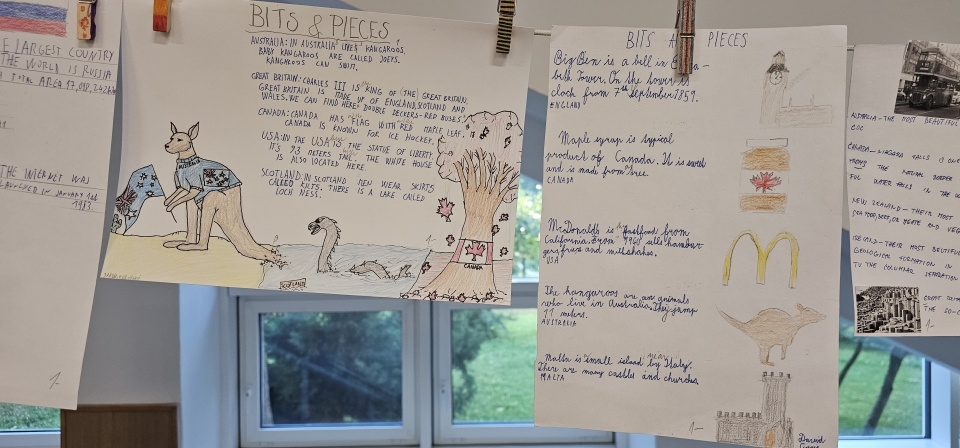 E LARGEST COUNTRY
THE WORLD IS RUSSIA
TOTAL AREA 17,
THE WICKET WAS
IN JANUARY 1st
1983.
1-
BITS & PIECES
AUSTRALIA: IN AUSTRALIA LIVES KANGAROOS.
BABY KANGAROOS ARE CALLED JOEYS.
KANGAROOS CAN SWIM.
GREAT BRITAIN: CHARLES III IS THE KING OF (THE) GREAT BRITAIN.
GREAT BRITAIN IS MADE UP OF ENGLAND, SCOTLAND AND
WALES. WE CAN FIND HERE DOUBLE DECKERS-RED BUSES.
CANADA: CANADA HAS FLAG WITH RED MAPLE LEAF.
CANADA IS KNOWN FOR ICE HOCKEY.
USA: IN THE USA IS THE STATUE OF LIBERTY.
IT'S 93 METERS TALL. THE WHITE HOUSE
IS ALSO LOCATED HERE.
SCOTLAND: IN SCOTLAND MEN WEAR SKIRTS
CALLED KILTS. THERE IS A LAKE CALLED
LOCH NESS.
AUSTRALIA
CANADA
SCOTLAND
1-
BITS A PIECES
Big Ben is a bell in
beth Tower. On the tower is
clock from 7th September 1859.
ENGLAND
Maple syrup is typical
product of Canada. It is sweet
and is made from tree.
CANADA
McDonalds is fastfood from
California. From 1960 sells hambur-
gers, fries and milkshakes.
USA
The kangaroos are an animals
who live in Australia. They jump
11 meters.
AUSTRALIA
Malta is small island near by Italy.
There are many castles and churches.
MALTA
1-
David
AUSTRALIA - THE MOST BEAUTIFUL
CANADA - NIAGARA FALLS IS
FROM THE NATURAL BORDER
FUL WATER FALLS IN THE
NEW ZEALAND - THEIR MOST
SEA FOOD, BEEF, OR MEATS AND VEG
IRELAND - THEIR MOST BEUTIFUL
GEOLOGICAL FORMATION IN
TO THE COLUMNAR SEPARATION
GREAT
THE SO-C
1-